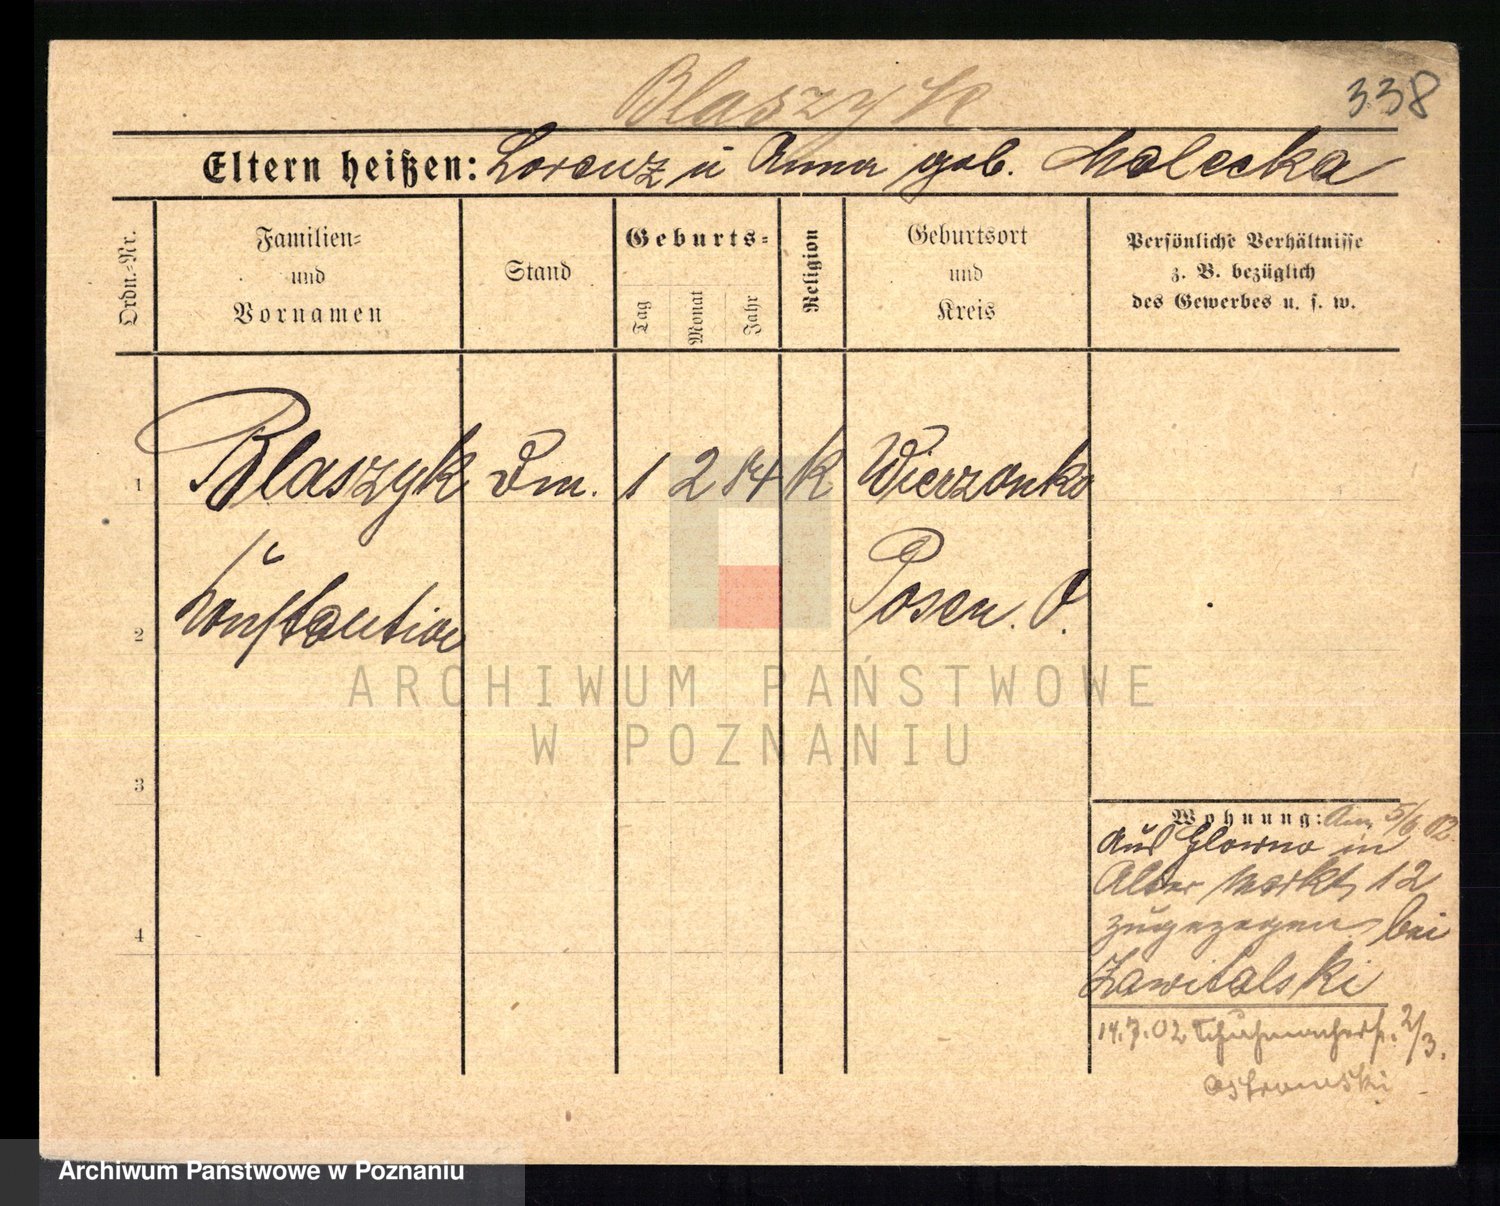 Blaszyk
338
Eltern heißen: Lorenz u Anna geb. Malecka
Ordn.-Nr.
Familien-
und
Vornamen
Stand
Geburts-
Tag
Monat
Jahr
Religion
Geburtsort
und
Kreis
Persönliche Verhältnisse
z. B. bezüglich
des Gewerbes u. s. w.
1
Blaszyk
Dm.
1 2 84
K
Wierzonka
Konstantine
Posen. O.
2
3
4
Wohnung: Am 5/6 02
aus Glowno in
Alter Markt 12
zugezogen bei
Zawitalski
14.7.02 Schuhmacherstr. 2/3.
Ostrowski
ARCHIWUM PAŃSTWOWE
W POZNANIU
Archiwum Państwowe w Poznaniu